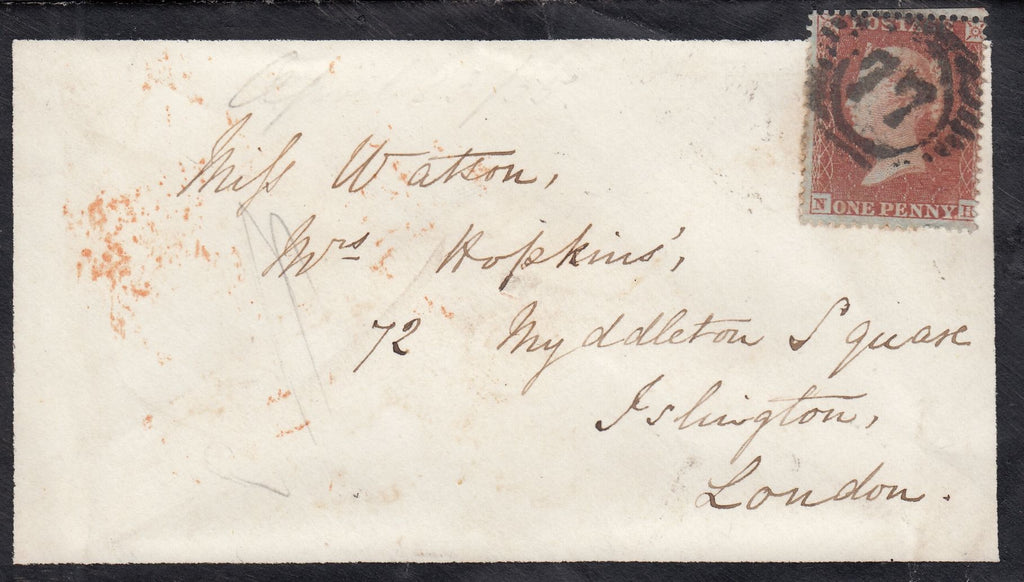 POSTAGE
77
N ONE PENNY H
Miss Watson,
Mrs Hopkins',
72 Myddleton Square
Islington,
London.